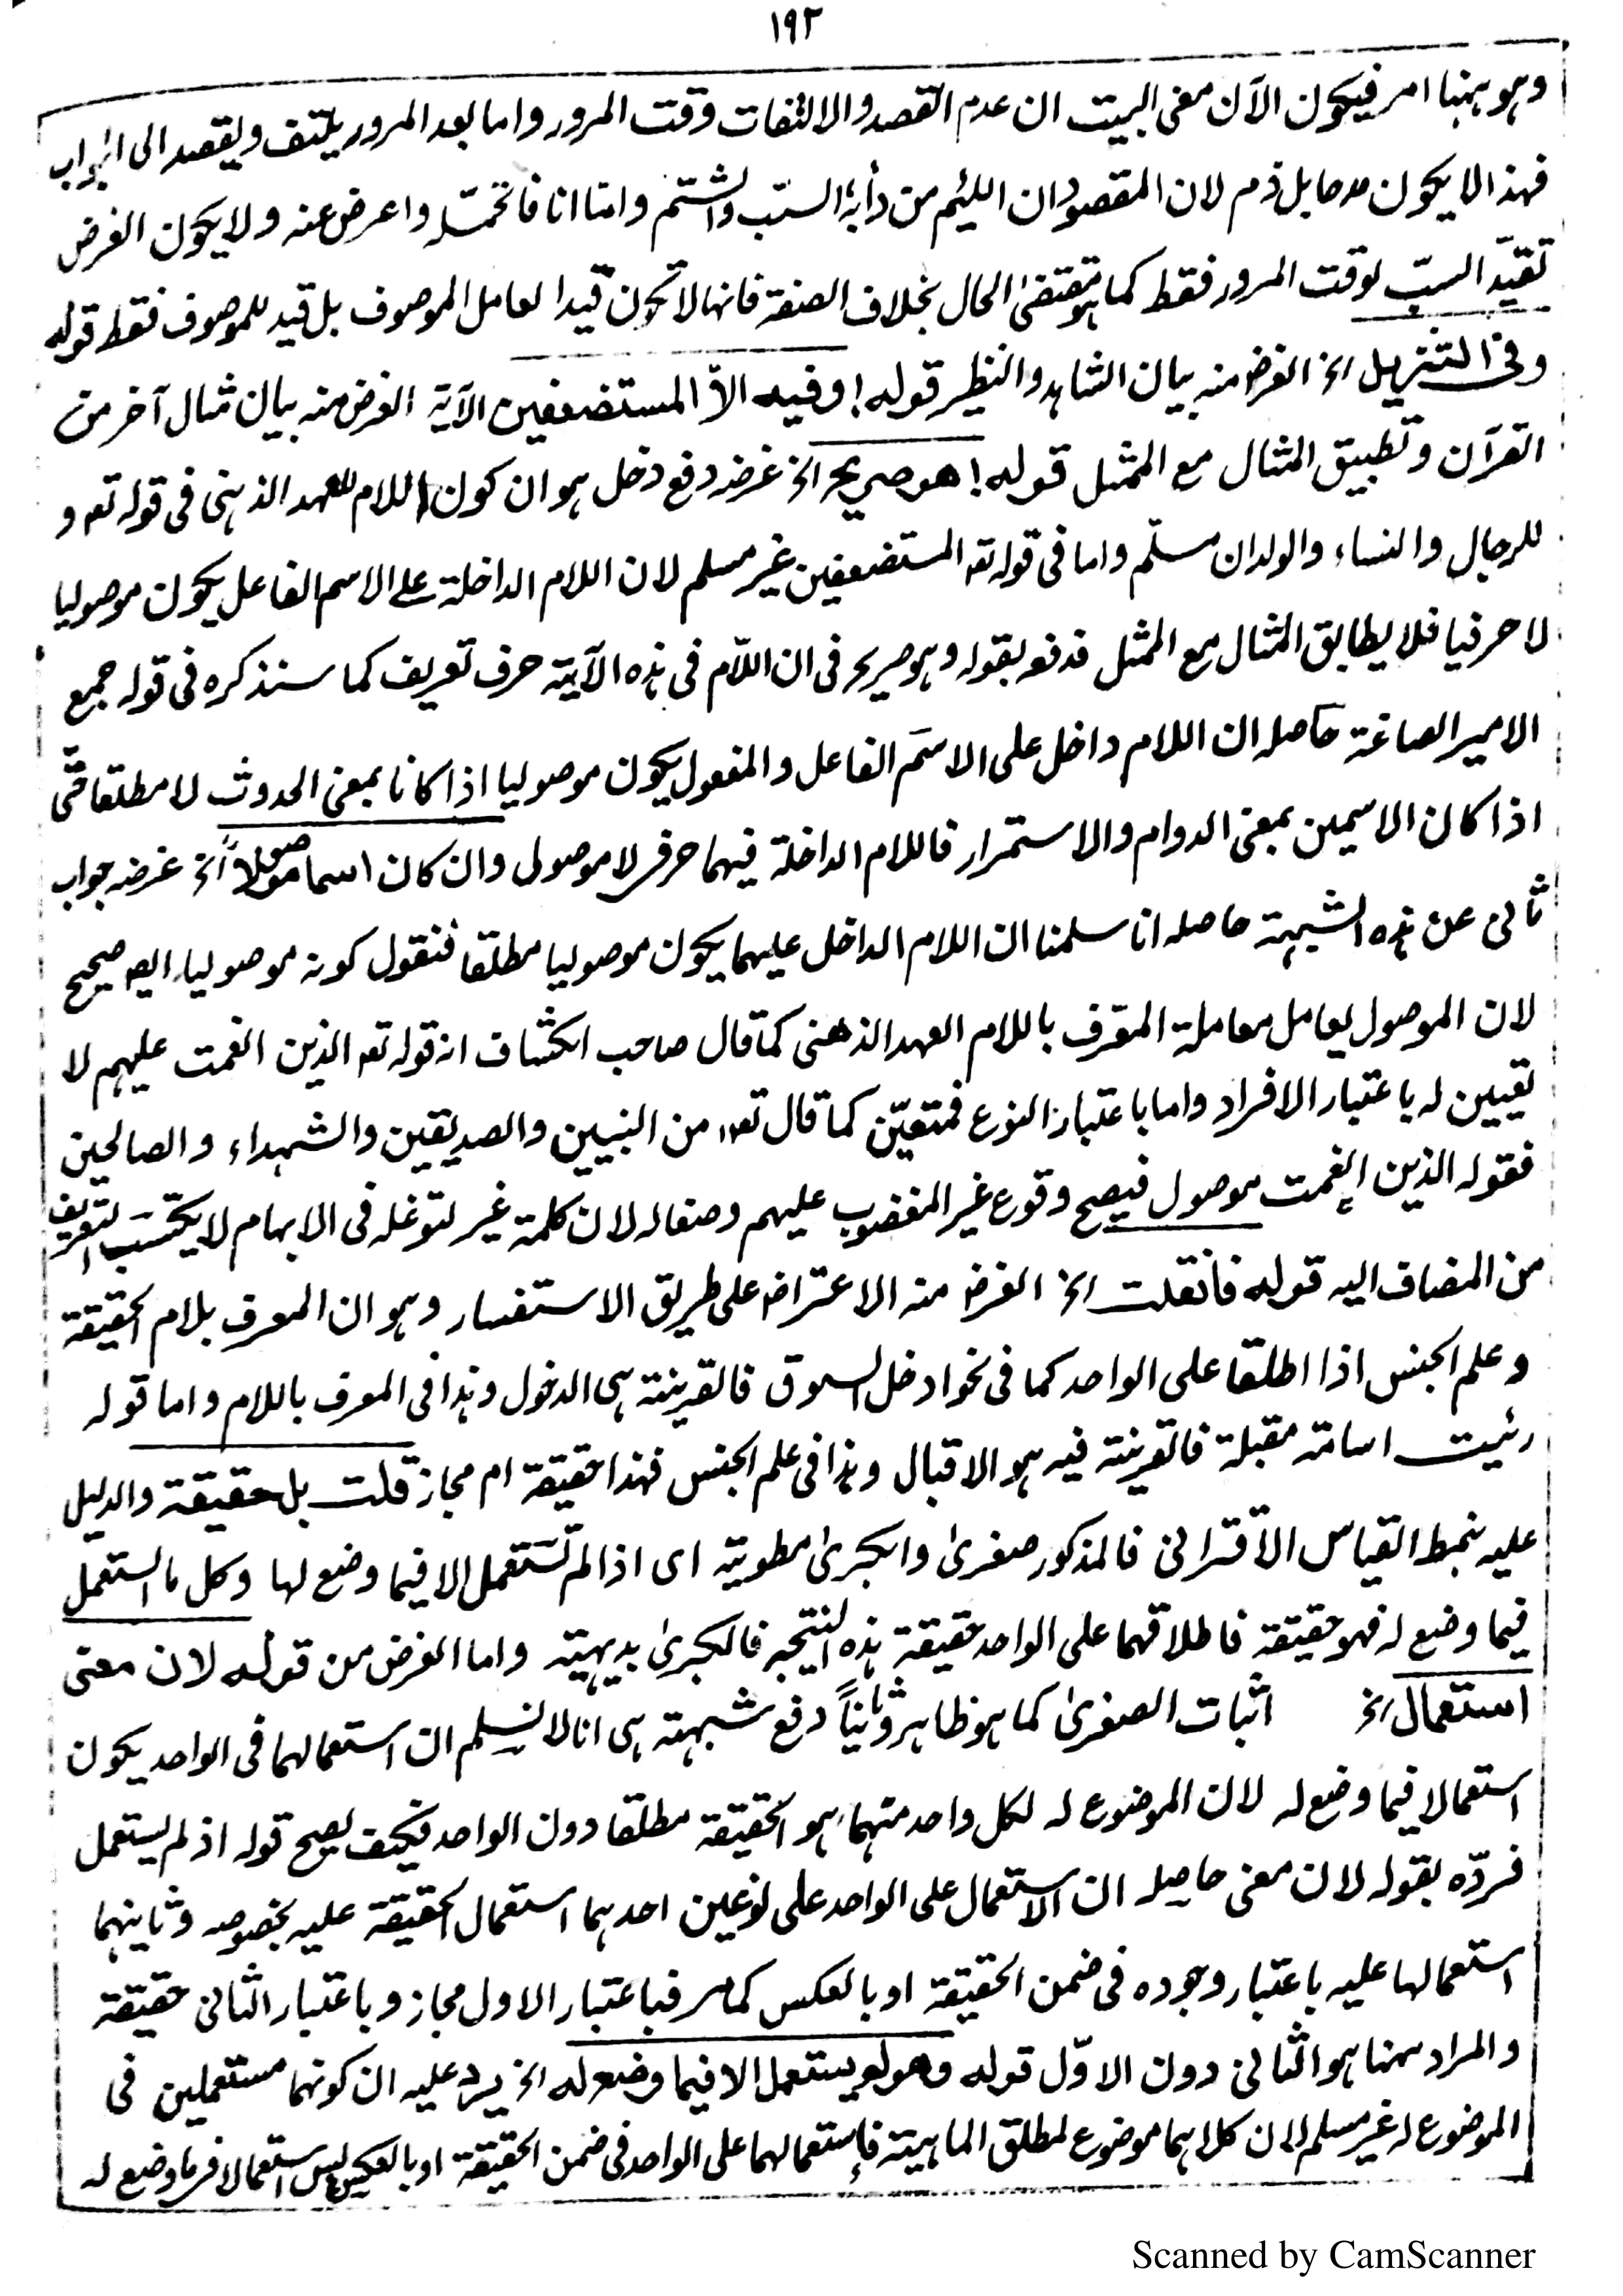 ١٩٢
وهو ههنا امر فيكون الآن معنى البيت ان عدم القصد والالتفات وقت المرور واما بعد المرور يلتف ويقصد الى
فهذا لا يكون مدحا بل ذم لان المقصود ان اللئيم من دأبه السبّ والشتم وامّا انا فاتحمّله واعرض عنه ولا يكون الغرض
تقيّد السبّ لوقت المرور فقط كما هو مقتضى الحال بخلاف الصفة فانها لا تكون قيدا لعامل الموصوف بل قيد للموصوف فقط قوله
وفى التنزيل الخ الغرض منه بيان الشاهد والنظير قوله! وفيه الاّ المستضعفين الآية الغرض منه بيان مثال آخر من
القرآن وتطبيق المثال مع الممثل قوله! هو صريح الخ غرضه دفع دخل هو ان كون اللام للعهد الذهنى فى قوله تعه و
للرجال والنساء والولدان مسلّم واما فى قوله تعه المستضعفين غير مسلم لان اللام الداخلة على الاسم الفاعل يكون موصوليا
لا حرفيا فلا يطابق المثال مع الممثل فدفعه بقوله وهو صريح فى ان اللاّم فى هذه الآية حرف تعريف كما سنذكره فى قوله جمع
الامير الصاغة حاصله ان اللام داخل على الاسم الفاعل والمفعول يكون موصوليا اذا كانا بمعنى الحدوث لا مطلقا حتّى
اذا كان الاسمين بمعنى الدوام والاستمرار فاللام الداخلة فيهما حرفى لا موصولى وان كان اسما موصولاً الخ غرضه جواب
ثانى عن هذه الشبهة حاصله انا سلمنا ان اللام الداخل عليهما يكون موصوليا مطلقا فنقول كونه موصوليا ايضا صحيح
لان الموصول يعامل معاملة المعرّف باللام العهد الذهنى كما قال صاحب الكشاف ان قوله تعه الذين انعمت عليهم لا
تعيين له باعتبار الافراد واما باعتبار النوع فمتعيّن كما قال تعه من النبيين والصديقين والشهداء والصالحين
فقوله الذين انعمت موصول فيصح وقوع غير المغضوب عليهم وصفا له لان كلمة غير لتوغله فى الابهام لا يكتسب التعريف
من المضاف اليه قوله فان قلت الخ الغرض منه الاعتراض على طريق الاستفسار وهو ان المعرف بلام الحقيقة
وعلم الجنس اذا اطلقا على الواحد كما فى نحو ادخل السوق فالقرينة هى الدخول وهذا فى المعرف باللام واما قوله
رئيت اسامة مقبلة فالقرينة فيه هو الاقبال وهذا فى علم الجنس فهذا حقيقة ام مجاز قلت بل حقيقة والدليل
عليه بنمط القياس الاقترانى فالمذكور صغرىٰ والكبرىٰ مطوية اى اذا لم تستعمل الا فيما وضع لها وكل ما استعمل
فيما وضع له فهو حقيقة فاطلاقهما على الواحد حقيقة هذه النتيجة فالكبرىٰ بديهية واما الغرض من قوله لان معنى
استعمال الخ اثبات الصغرىٰ كما هو ظاهر وثانياً دفع شبهة هى انا لا نسلم ان استعمالهما فى الواحد يكون
استعمالا فيما وضع له لان الموضوع له لكل واحد منهما هو الحقيقة مطلقا دون الواحد فكيف يصح قوله اذ لم يستعمل
فردّه بقوله لان معنى حاصله ان الاستعمال على الواحد على نوعين احدهما استعمال الحقيقة عليه بخصوصه وثانيهما
استعمالها عليه باعتبار وجوده فى ضمن الحقيقة او بالعكس كما مر فباعتبار الاول مجاز وباعتبار الثانى حقيقة
والمراد ههنا هو الثانى دون الاوّل قوله وهو لم يستعمل الا فيما وضع له الخ يرد عليه ان كونهما مستعملين فى
الموضوع له غير مسلم لان كلاهما موضوع لمطلق الماهية فاستعمالهما على الواحد فى ضمن الحقيقة او بالعكس ليس استعمالا فيما وضع له
Scanned by CamScanner